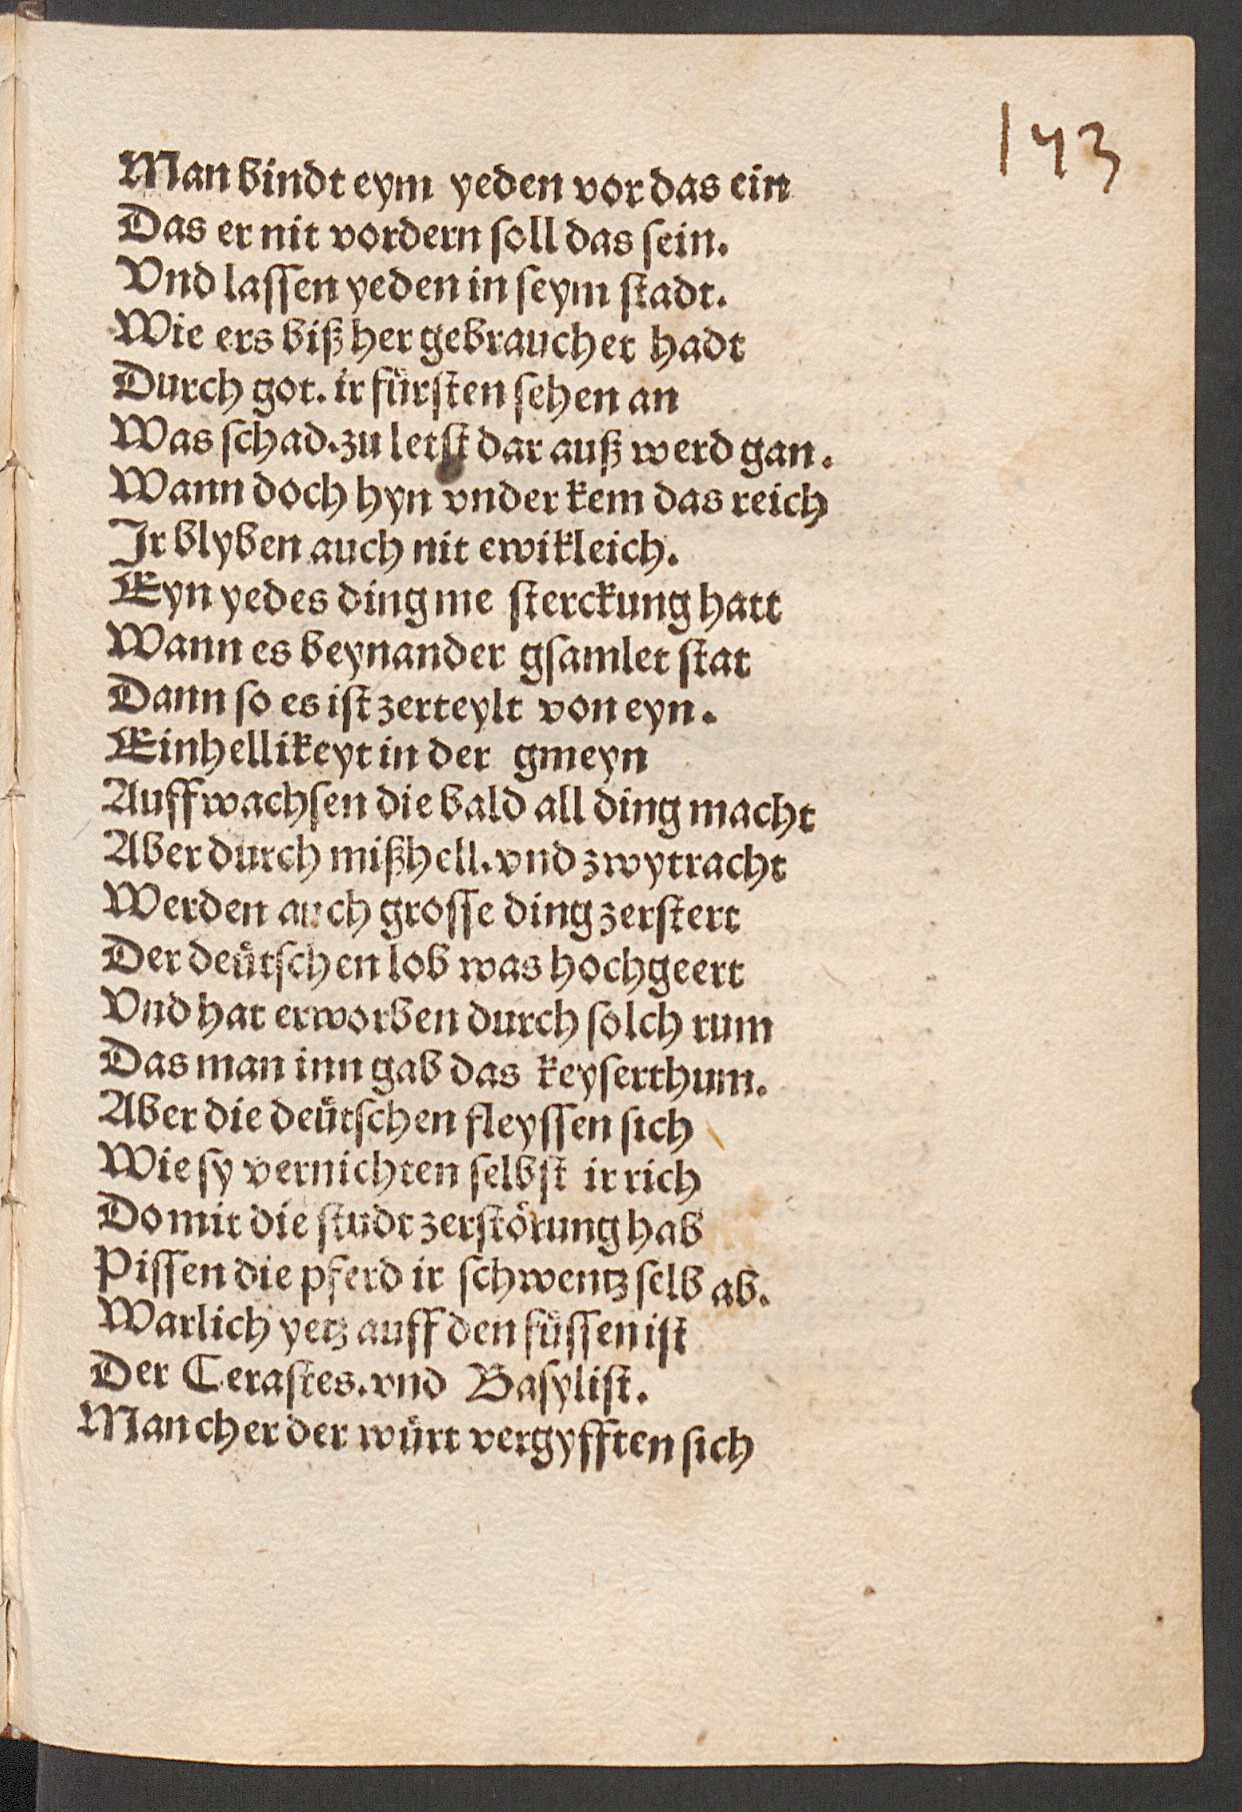 143
Man bindt eym yeden vor das ein
Das er nit vordern soll das sein.
Vnd lassen yeden in seym stadt.
Wie ers biß her gebrauchet hadt
Durch got. ir fürsten sehen an
Was schad. zu letst dar auß werd gan.
Wann doch hyn vnder kem das reich
Ir blyben auch nit ewikleich.
Eyn yedes ding me sterckung hatt
Wann es beynander gsamlet stat
Dann so es ist zerteylt von eyn.
Einhellikeyt in der gmeyn
Auffwachsen die bald all ding macht
Aber durch mißhell. vnd zwytracht
Werden auch grosse ding zerstert
Der deütschen lob was hochgeert
Vnd hat erworben durch solch rum
Das man inn gab das keyserthum.
Aber die deütschen fleyssen sich
Wie sy vernichten selbst ir rich
Do mit die studt zerstörung hab
Pissen die pferd ir schwentz selb ab.
Warlich yetz auff den füssen ist
Der Cerastes. vnd Basylist.
Mancher der würt vergyfften sich